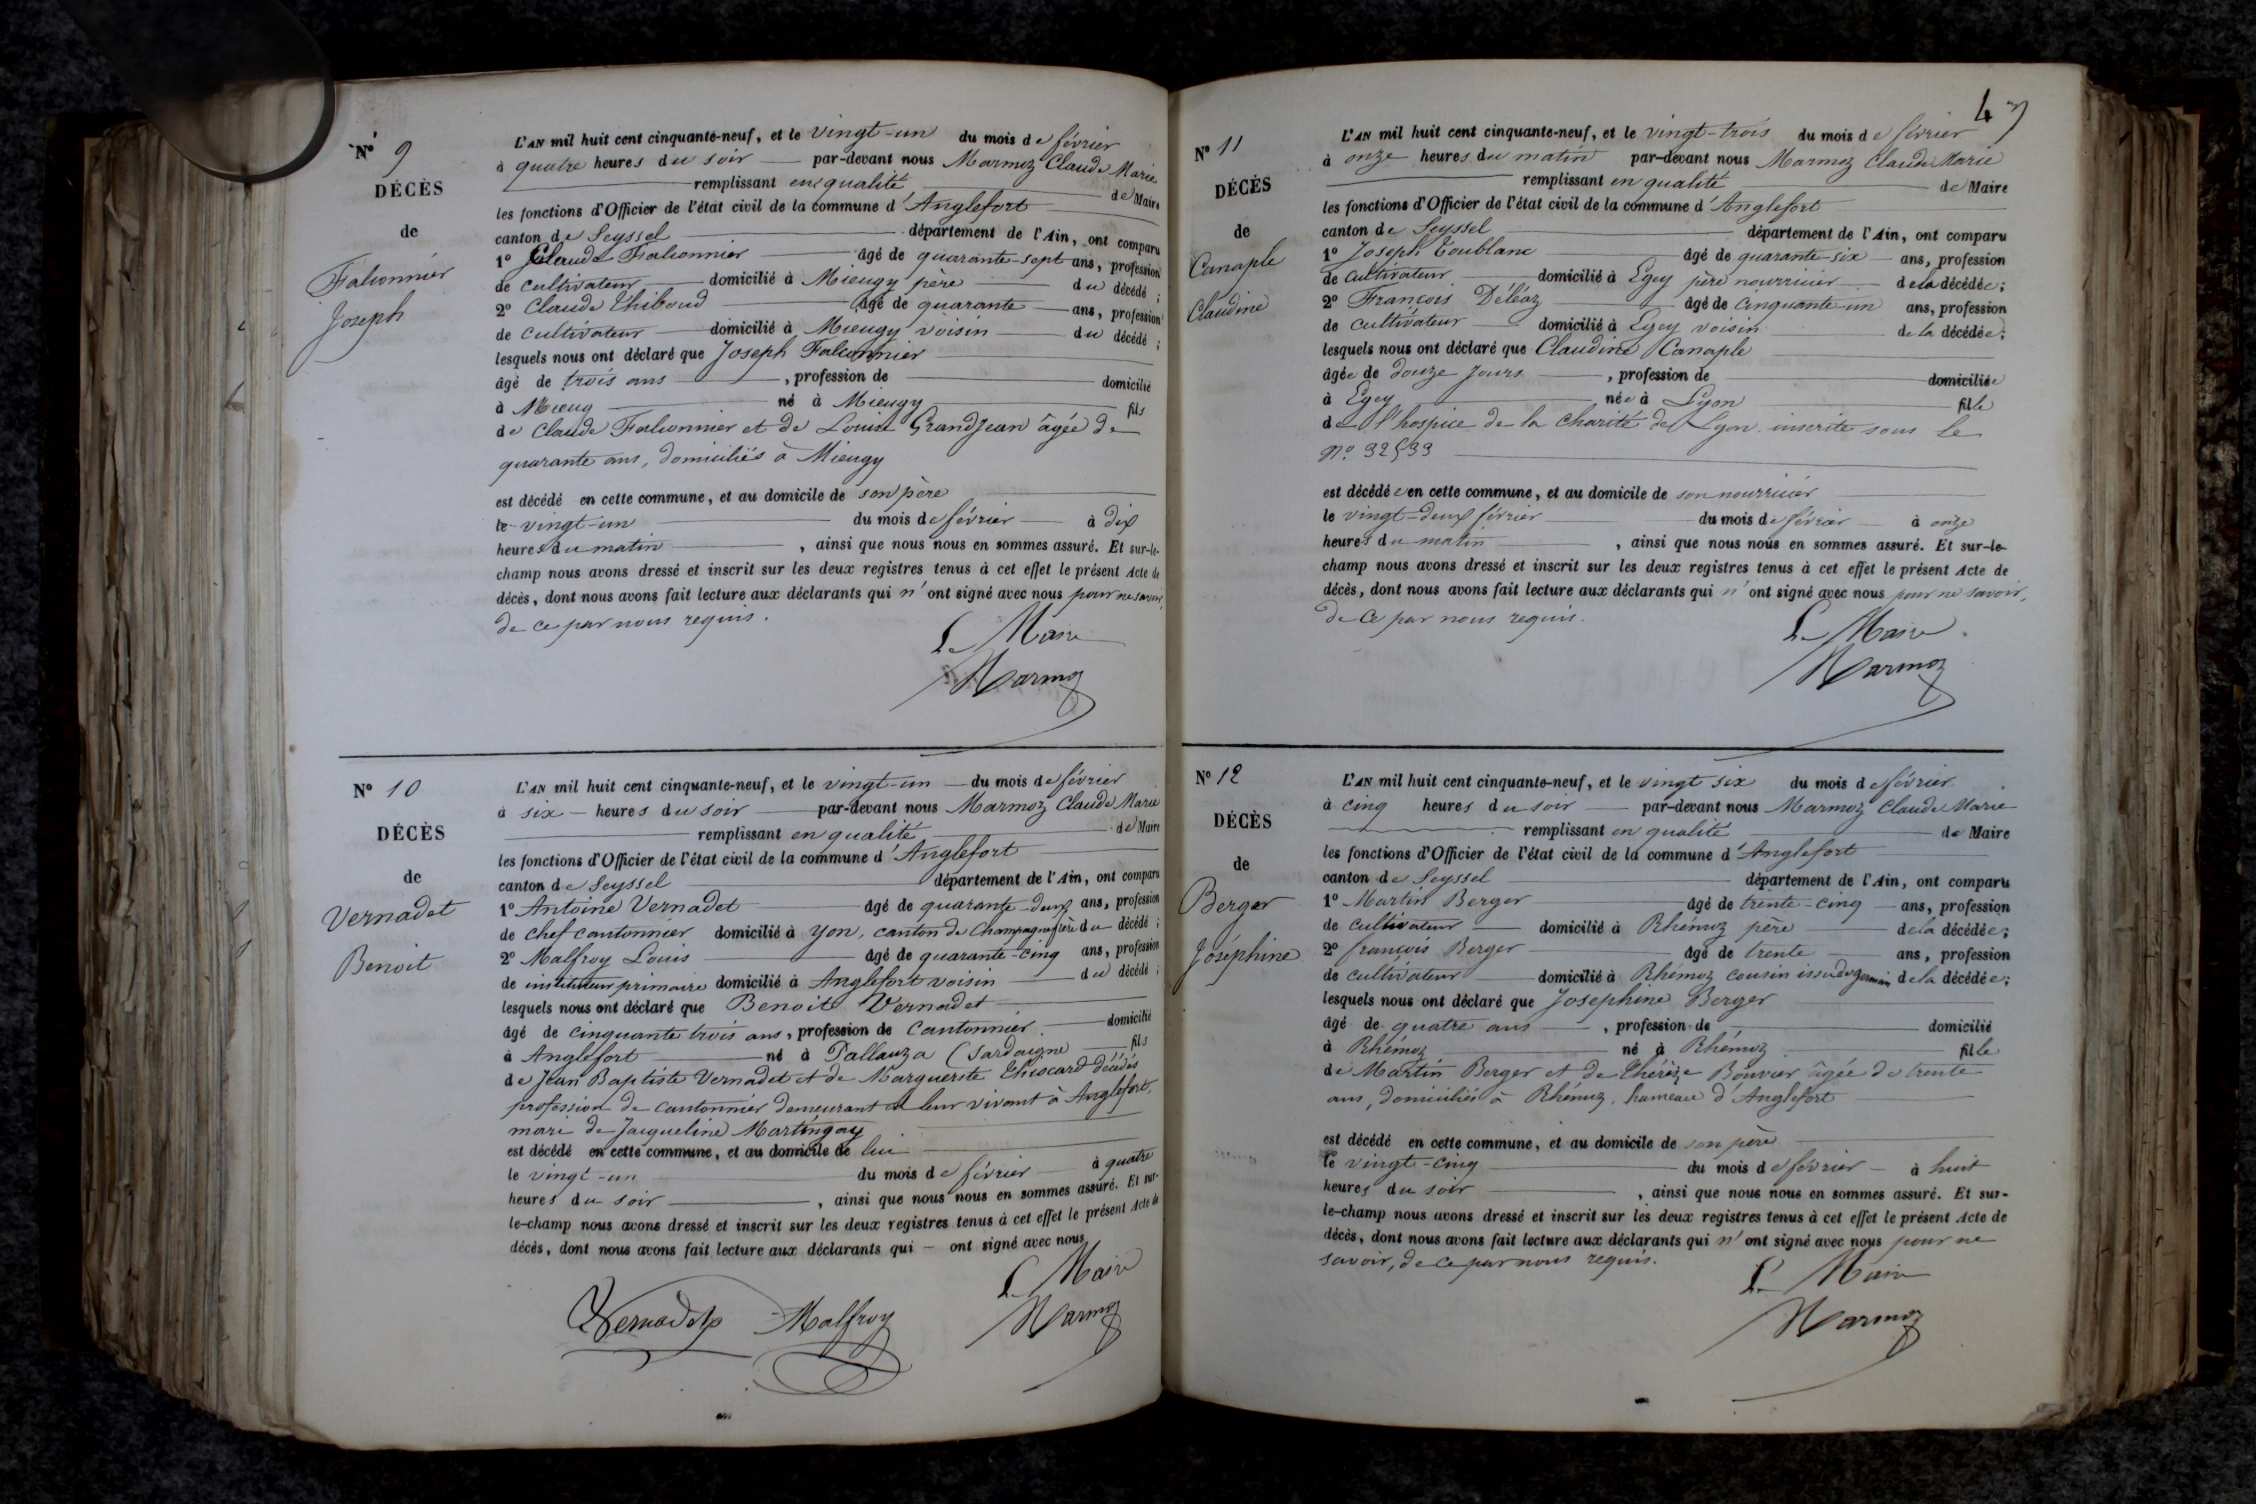 N° 9
DÉCÈS
de
Falconnier
Joseph
L'AN mil huit cent cinquante-neuf, et le vingt-un du mois de février
à quatre heures du soir par-devant nous Marmoz Claude Marie
remplissant en qualité de Maire
les fonctions d'Officier de l'état civil de la commune d'Anglefort
canton de Seyssel département de l'Ain, ont comparu
1° Claude Falconnier âgé de quarante-sept ans, profession
de cultivateur domicilié à Mieugy père du décédé ;
2° Claude Thiboud âgé de quarante ans, profession
de cultivateur domicilié à Mieugy voisin du décédé ;
lesquels nous ont déclaré que Joseph Falconnier
âgé de trois ans , profession de domicilié
à Mieug né à Mieugy fils
de Claude Falconnier et de Louise Grandjean âgée de
quarante ans, domiciliés à Mieugy
est décédé en cette commune, et au domicile de son père
le vingt-un du mois de février à dix
heures du matin , ainsi que nous nous en sommes assuré. Et sur-le-
champ nous avons dressé et inscrit sur les deux registres tenus à cet effet le présent Acte de
décès, dont nous avons fait lecture aux déclarants qui n'ont signé avec nous pour ne savoir,
de ce par nous requis.
Le Maire
Marmoz
N° 10
DÉCÈS
de
Vernadet
Benoit
L'AN mil huit cent cinquante-neuf, et le vingt-un du mois de février
à six heures du soir par-devant nous Marmoz Claude Marie
remplissant en qualité de Maire
les fonctions d'Officier de l'état civil de la commune d'Anglefort
canton de Seyssel département de l'Ain, ont comparu
1° Antoine Vernadet âgé de quarante-deux ans, profession
de chef cantonnier domicilié à Yon, canton de Champagne frère du décédé ;
2° Malfroy Louis âgé de quarante-cinq ans, profession
de instituteur primaire domicilié à Anglefort voisin du décédé ;
lesquels nous ont déclaré que Benoit Vernadet
âgé de cinquante trois ans, profession de cantonnier domicilié
à Anglefort né à Pallanza (Sardaigne fils
de Jean Baptiste Vernadet et de Marguerite décédés
profession de cantonnier demeurant de leur vivant à Anglefort,
mari de Jacqueline Martingay
est décédé en cette commune, et au domicile de lui
le vingt-un du mois de février à quatre
heures du soir , ainsi que nous nous en sommes assuré. Et sur-
le-champ nous avons dressé et inscrit sur les deux registres tenus à cet effet le présent Acte de
décès, dont nous avons fait lecture aux déclarants qui ont signé avec nous
Le Maire
Vernadet Malfroy Marmoz
47
N° 11
DÉCÈS
de
Canaple
Claudine
L'AN mil huit cent cinquante-neuf, et le vingt-trois du mois de février
à onze heures du matin par-devant nous Marmoz Claude Marie
remplissant en qualité de Maire
les fonctions d'Officier de l'état civil de la commune d'Anglefort
canton de Seyssel département de l'Ain, ont comparu
1° Joseph Toublanc âgé de quarante-six ans, profession
de cultivateur domicilié à Egey père nourricier de la décédée ;
2° François Déléaz âgé de cinquante-un ans, profession
de cultivateur domicilié à Egey voisin de la décédée ;
lesquels nous ont déclaré que Claudine Canaple
âgée de douze jours , profession de domiciliée
à Egey née à Lyon fille
de l'hospice de la charité de Lyon inscrite sous le
N° 32533
est décédée en cette commune, et au domicile de son nourricier
le vingt-deux février du mois de février à onze
heures du matin , ainsi que nous nous en sommes assuré. Et sur-le-
champ nous avons dressé et inscrit sur les deux registres tenus à cet effet le présent Acte de
décès, dont nous avons fait lecture aux déclarants qui n'ont signé avec nous pour ne savoir,
de ce par nous requis.
Le Maire
Marmoz
N° 12
DÉCÈS
de
Berger
Joséphine
L'AN mil huit cent cinquante-neuf, et le vingt six du mois de février
à cinq heures du soir par-devant nous Marmoz Claude Marie
remplissant en qualité de Maire
les fonctions d'Officier de l'état civil de la commune d'Anglefort
canton de Seyssel département de l'Ain, ont comparu
1° Martin Berger âgé de trente-cinq ans, profession
de cultivateur domicilié à Rhémoz père de la décédée ;
2° françois Berger âgé de trente ans, profession
de cultivateur domicilié à Rhémoz cousin issu de germain de la décédée ;
lesquels nous ont déclaré que Josephine Berger
âgé de quatre ans , profession de domicilié
à Rhémoz né à Rhémoz fille
de Martin Berger et de Thérèze Bouvier âgée de trente
ans, domiciliés à Rhémoz, hameau d'Anglefort
est décédé en cette commune, et au domicile de son père
le vingt-cinq du mois de février à huit
heures du soir , ainsi que nous nous en sommes assuré. Et sur-
le-champ nous avons dressé et inscrit sur les deux registres tenus à cet effet le présent Acte de
décès, dont nous avons fait lecture aux déclarants qui n'ont signé avec nous pour ne
savoir, de ce par nous requis.
Le Maire
Marmoz